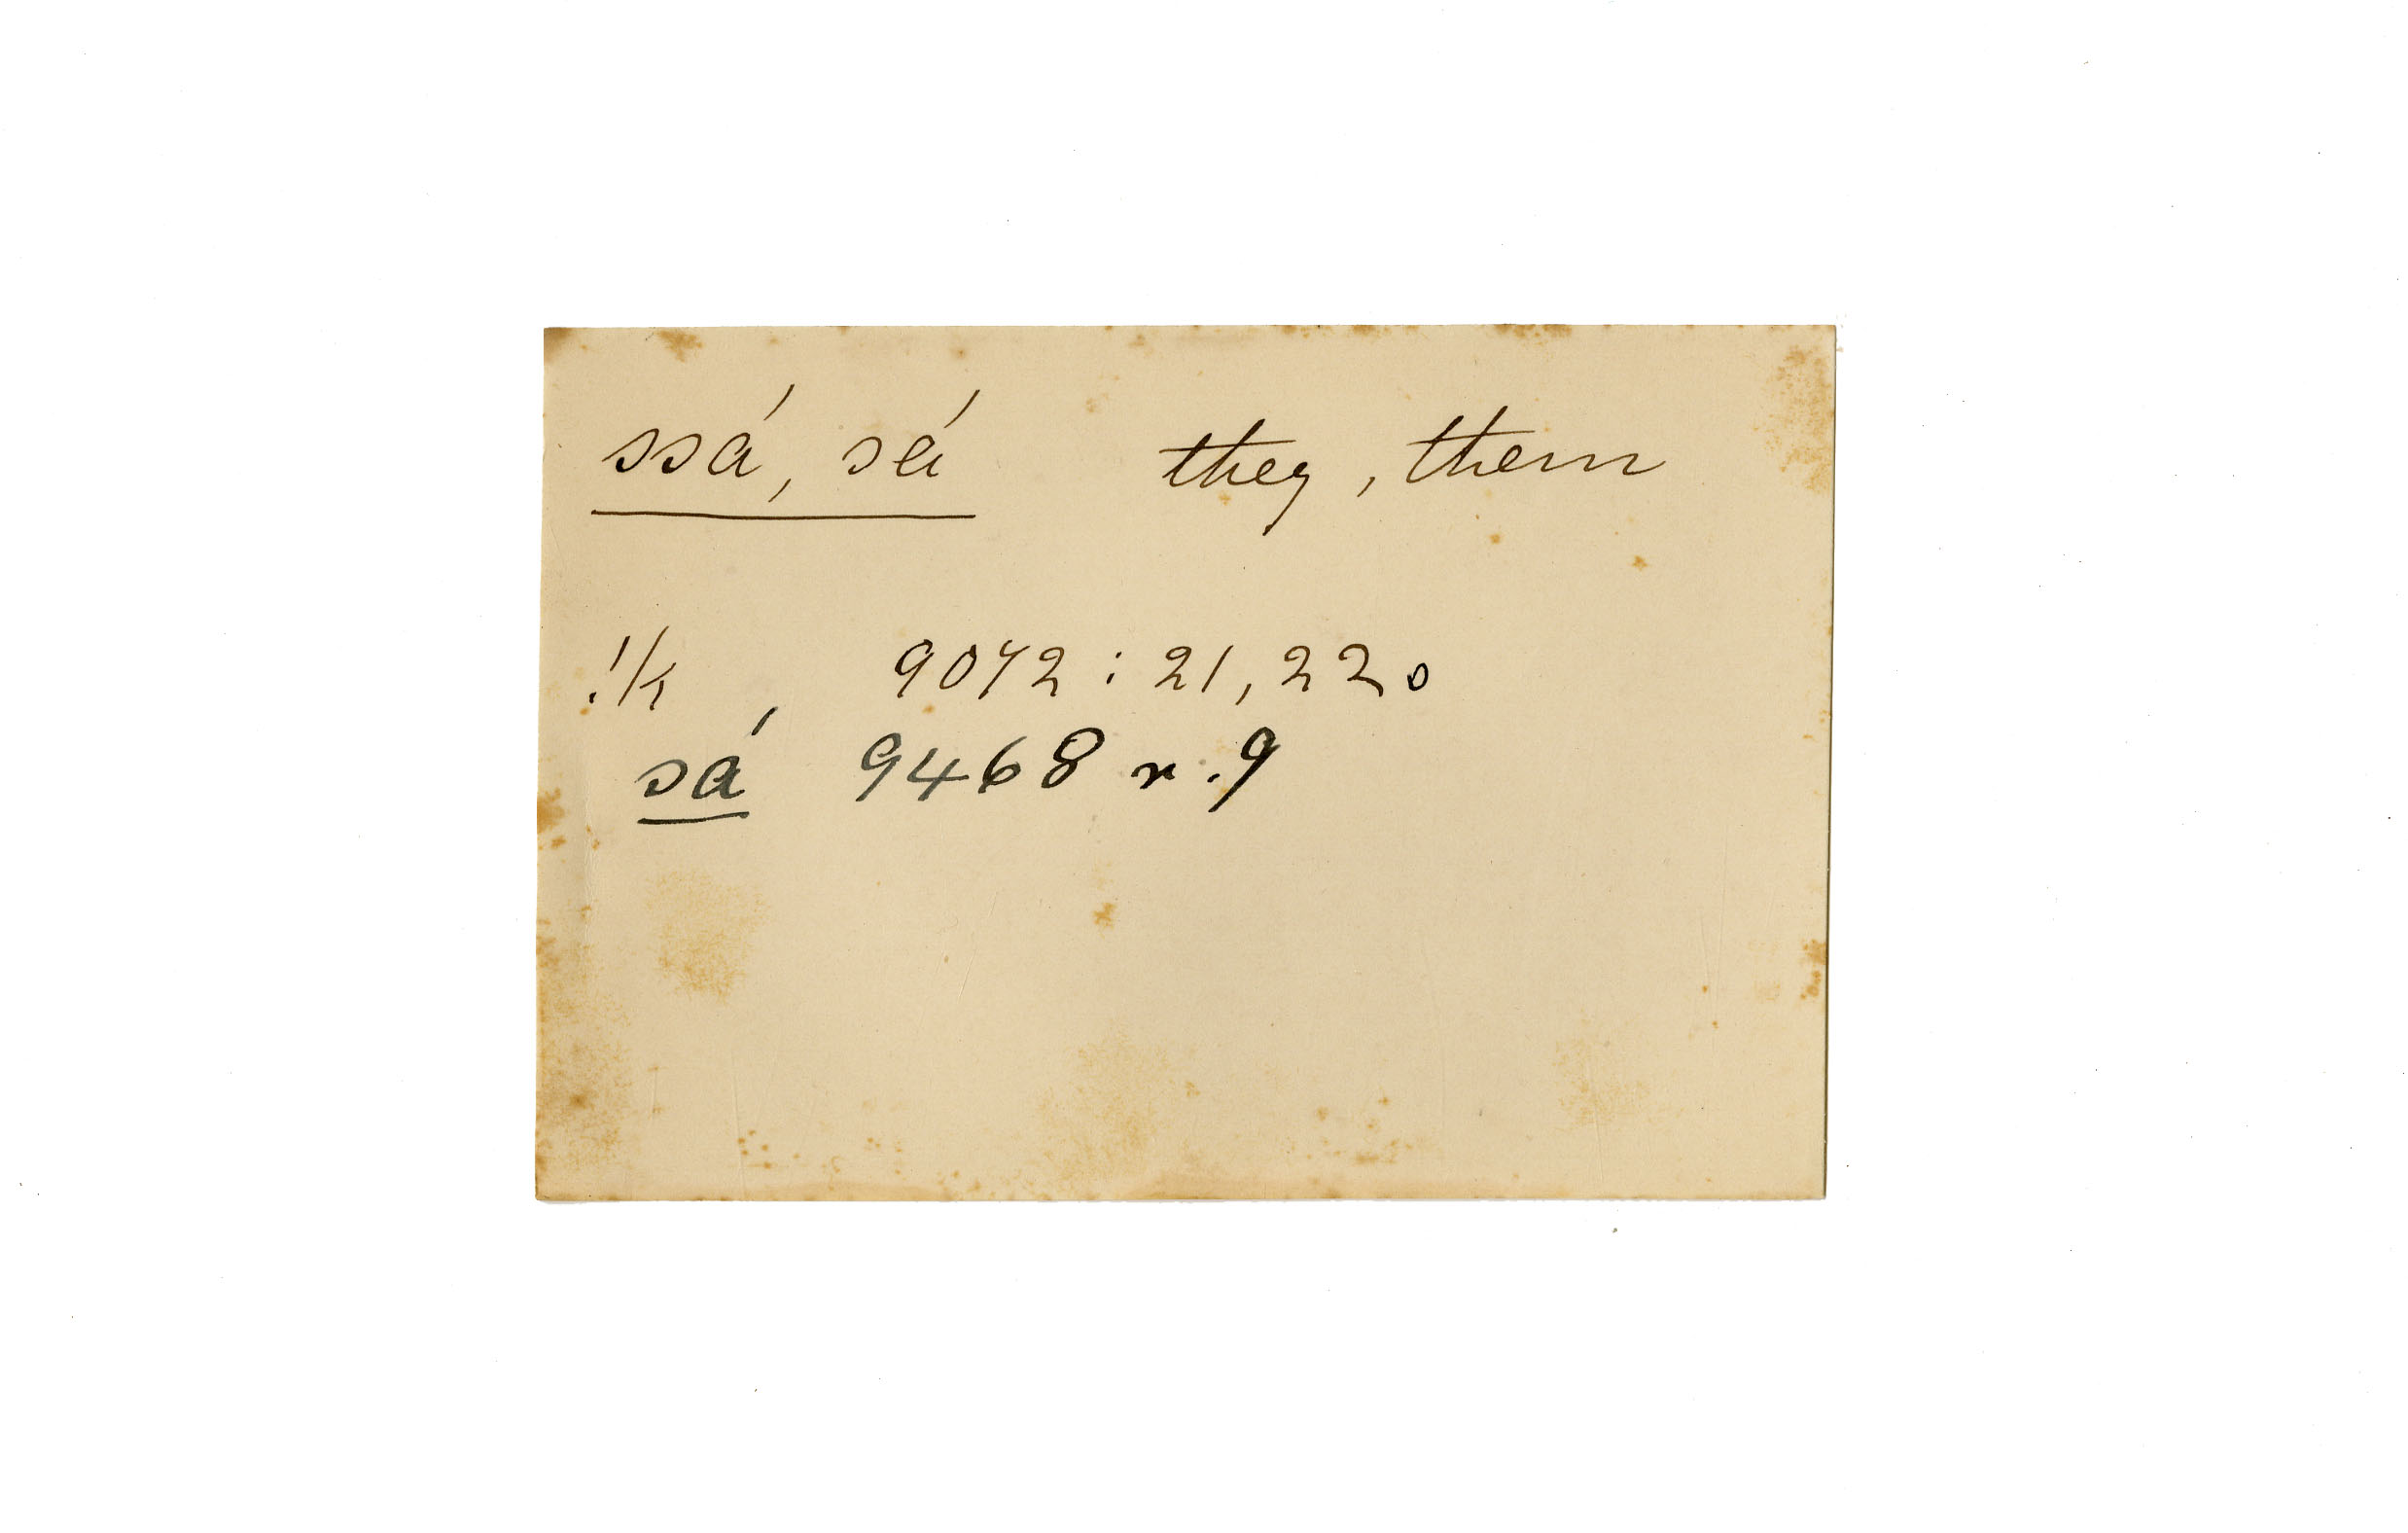 ssá, sá they, them
!k 9072 : 21, 22 o
sá 9468 r. 9